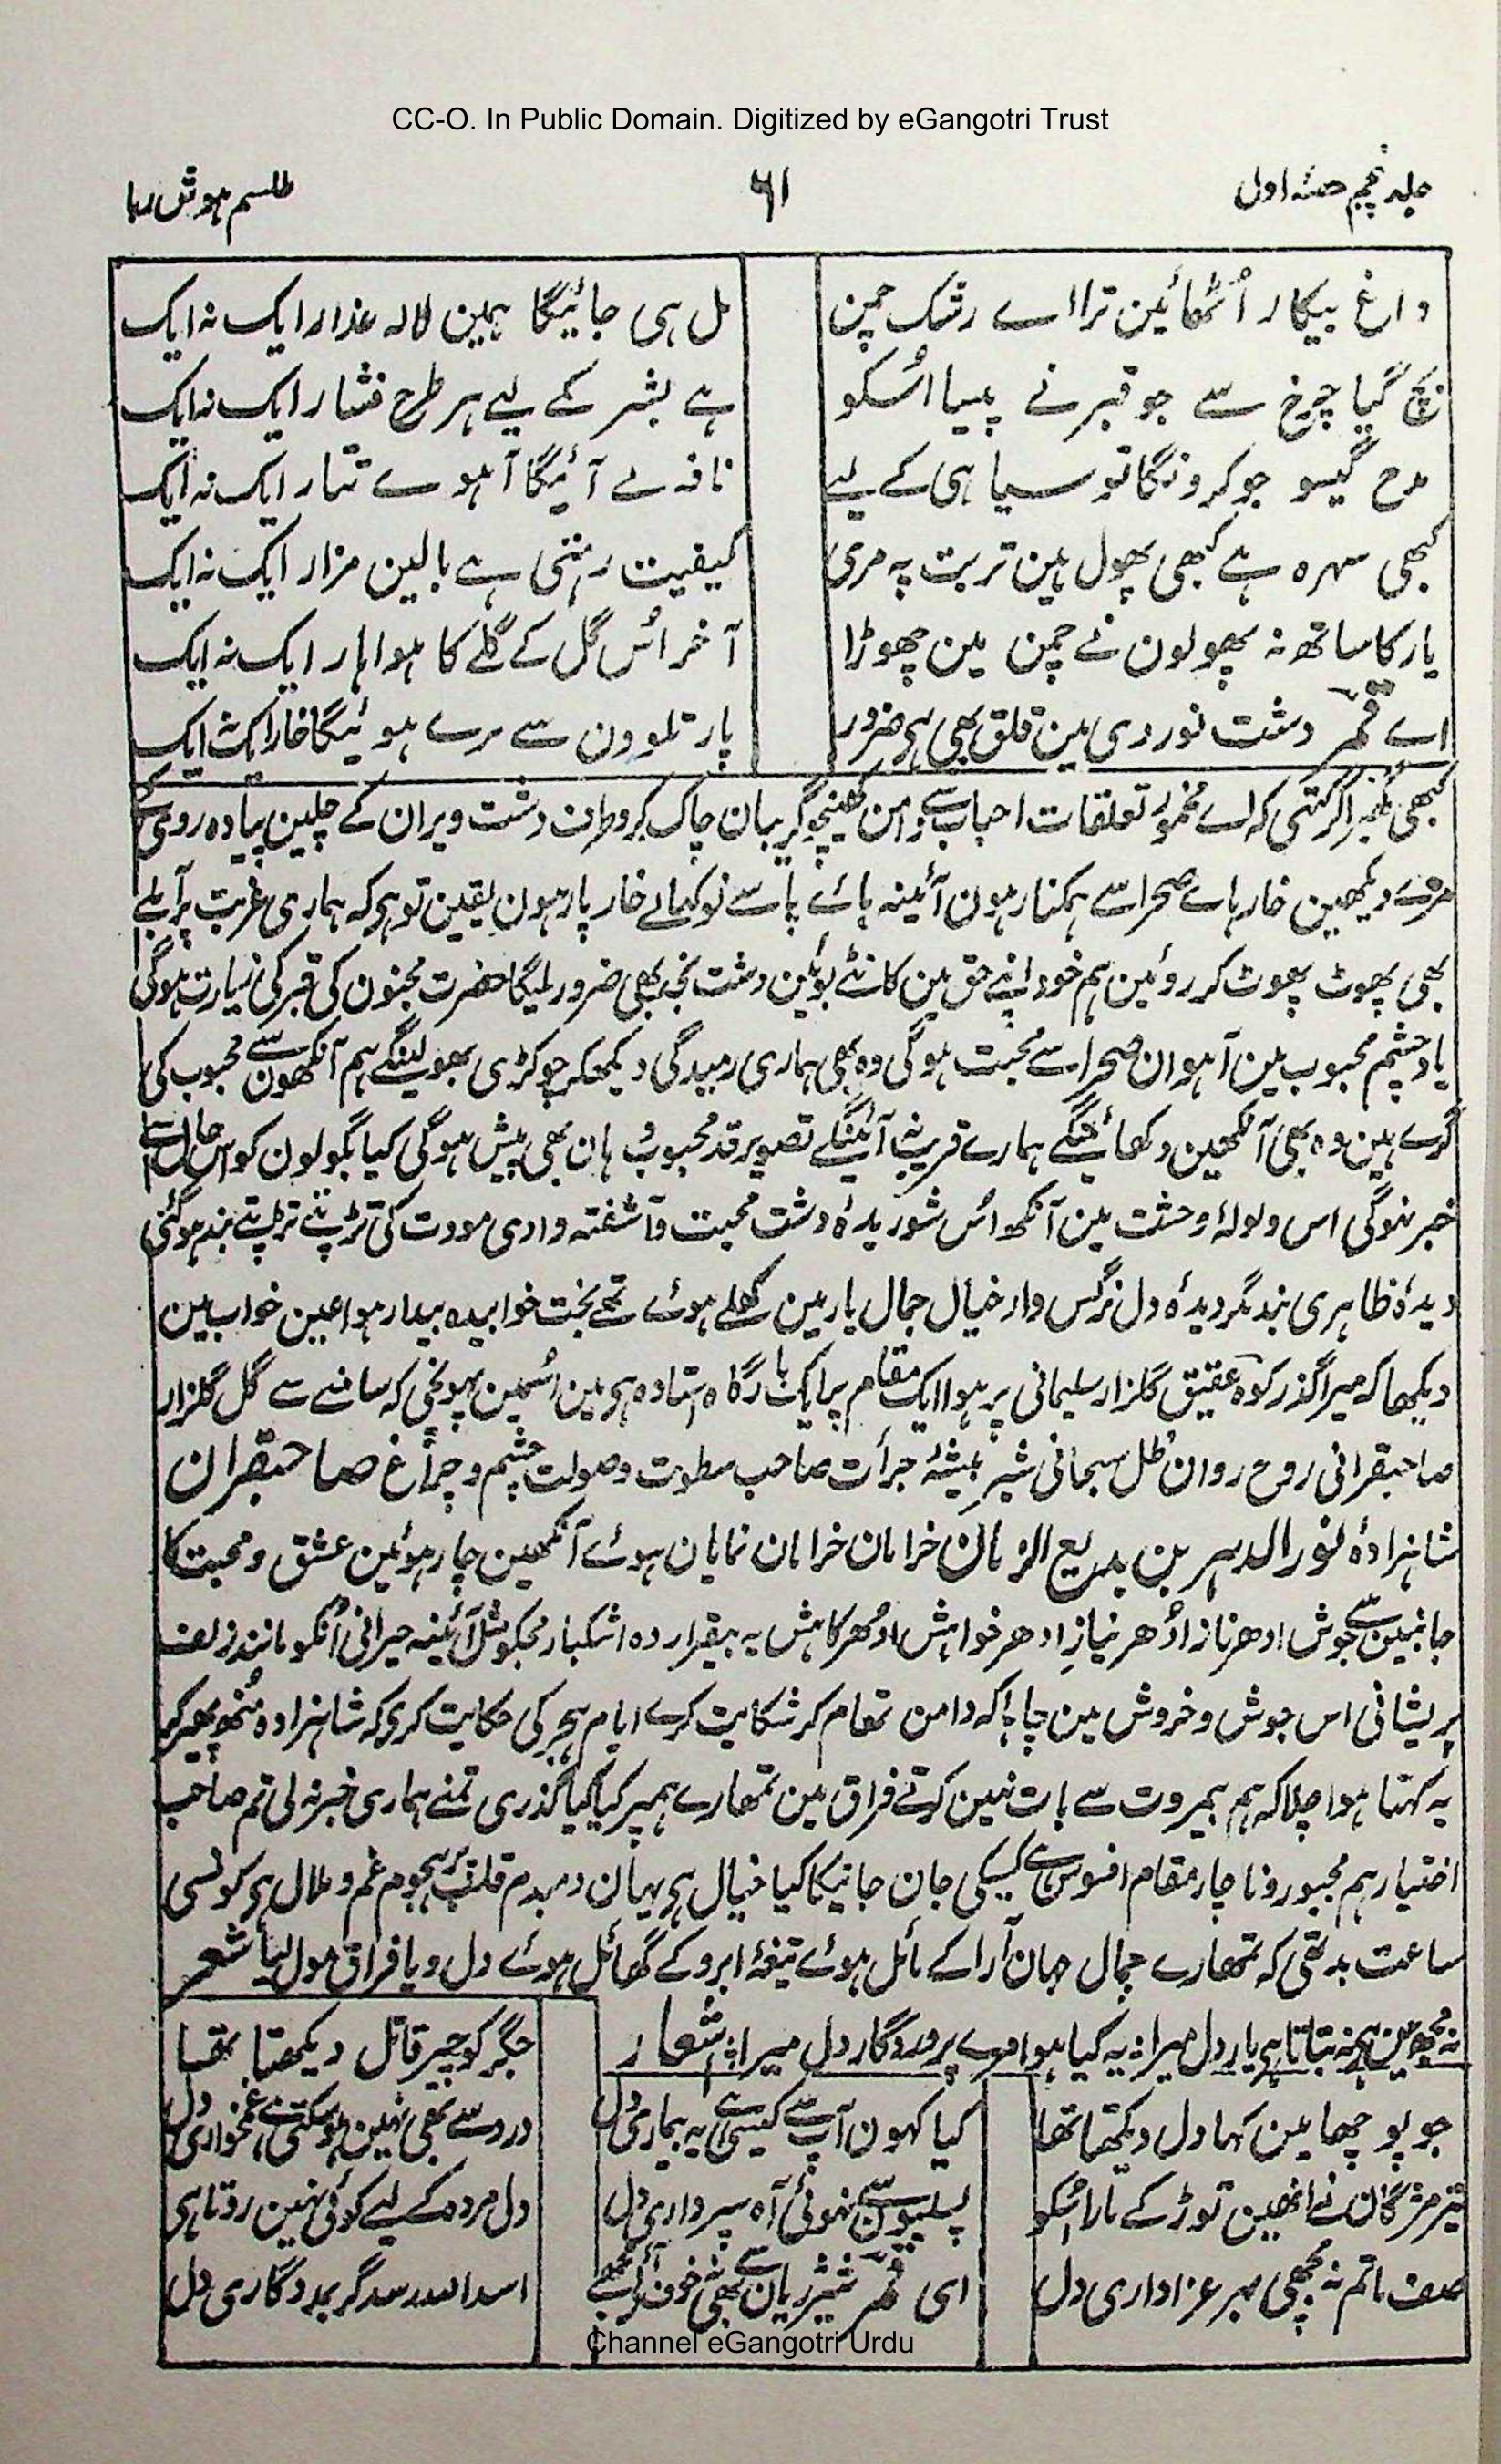 CC-O. In Public Domain. Digitized by eGangotri Trust
جلد پنجم حصّہ اول ۶۱ طلسم ہوش ربا
داغ بیکار اُٹھائین ترا اے رشک چمن مل ہی جائیگا ہمین لالہ عذار ایک نہ ایک
بچ گیا چرخ سے جو قبر نے پیسا اُسکو ہے بشر کے لیے ہر طرح فشار ایک نہ ایک
مدح گیسو جو کرونگا تو سیاہی کے لیے نافہ لے آئیگا آہوے تتار ایک نہ ایک
کبھی سہرہ ہے کبھی پھول ہین تربت پہ مری کیفیت رہتی ہے بالین مزار ایک نہ ایک
یار کا ساتھ نہ پھولون نے چمن مین چھوڑا آخر اُس گل کے گلے کا ہوا ہار ایک نہ ایک
اے قمر دشت نوردی مین قلق بھی ہی ضرور پار تلوون سے مرے ہوئیگا خار ایک
کبھی گھبرا کر کہتی کہ اے مخمور تعلقات احباب سے دامن کھینچو گریبان چاک کرو طرف دشت ویران کے چلین پیادہ روی کے
مزے دیکھین خارہاے صحرا سے ہمکنار ہون آئینہ ہاے پا سے نوکہاے خار پار ہون یقین تو ہی کہ ہماری غربت پر آبلے
بھی پھوٹ پھوٹ کر روئین ہم خود اپنے حق مین کانٹے بوئین دشت نجد بھی ضرور ملیگا حضرت مجنون کی قبر کی زیارت ہوگی
یاد چشم محبوب مین آہوان صحرا سے محبت ہوگی وہ بھی ہماری رمیدگی دیکھکر چوکڑی بھولینگے ہم آنکھون سے محبوب کی
گرے ہین وہ بھی آنکھین دکھائینگے ہمارے قریب آئینگے تصویر قد محبوب وہان بھی پیش ہوگی کیا بگولون کو اس حال سے
خبر نہوگی اس ولولۂ وحشت مین آنکھ اُس شوریدۂ دشت محبت و آشفتہ وادی مودت کی تڑپتے تڑپتے بند ہوگئی
دیدۂ ظاہری بند مگر دیدۂ دل نرگس وار خیال جمال یار مین کھلے ہوئے تھے بخت خوابیدہ بیدار ہوا عین خواب مین
دیکھا کہ میرا گذر کوہ عقیق گلزار سلیمانی پر ہوا ایک مقام پر ایک بارگاہ استادہ ہی مین اُسمین پہونچی کہ سامنے سے گل گلزار
صاحبقرانی روح روان ظل سبحانی شیر بیشۂ جرأت صاحب سطوت و صولت چشم و چراغ صاحبقران
شاہزادۂ نور الدہر بن بدیع الزمان خرامان خرامان نمایان ہوئے آنکھین چار ہوئین عشق و محبت کا
جانبین سے جوش ادھر ناز اُدھر نیاز ادھر خواہش اُدھر کاہش یہ بیقرار وہ اشکبار مجکو مثل آئینہ حیرانی اُنکو مانند زلف
پریشانی اس جوش و خروش مین چاہا کہ دامن تھام کر شکایت کرے ایام ہجر کی حکایت کری کہ شاہزادہ مُنھ پھیر کر
یہ کہتا ہوا چلا کہ ہم بیمروت سے بات نہین کرتے فراق مین تمھارے ہمپر کیا کیا گذری تمنے ہماری خبر نہ لی تم صاحب
اختیار ہم مجبور و ناچار مقام افسوس ہے کسیکی جان جانیکا کیا خیال ہی یہان دمبدم قلب پر ہجوم غم و ملال ہی کونسی
ساعت بد تھی کہ تمھارے جمال جہان آرا کے مائل ہوئے تیغۂ ابرو کے گھائل ہوئے دل دیا فراق مول لیا شعر
نہ مجھ مین ہے نہ بتاتا ہی یار دل میرا ؛ یہ کیا ہوا مرے پروردگار دل میرا ؛ اشعار جگر کو چیر قاتل دیکھتا تھا
جو پوچھا مین کہا دل دیکھتا تھا کیا کہون آپ سے کیسی ہے یہ بیماری دل درد سے بھی نہین ہوسکتی ہے غمخواری دل
تیر مژگان نے انھین توڑ کے مارا اُسکو پسلیون سے نہوئی آہ سپرداری دل دل مردہ کے لیے کوئی نہین روتا ہی
صف ماتم نہ بچھی بہر عزاداری دل ای قمر شیر ژیان سے بھی نہ خوف آئے مجھے اسد اللہ رسد گر بمددگاری دل
Channel eGangotri Urdu